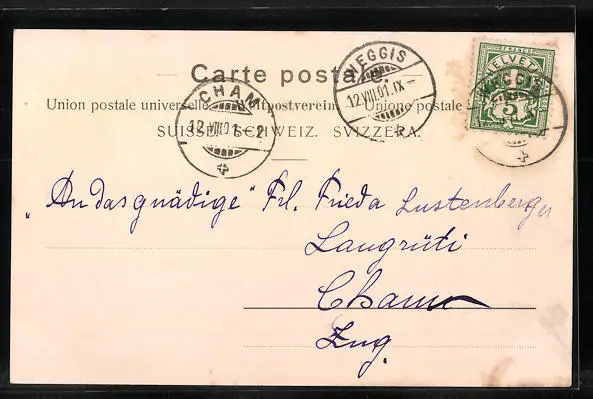 Carte postale.
Union postale universelle. Weltpostverein. Unione postale
SUISSE. SCHWEIZ. SVIZZERA.
CHAM
12.VIII.01.-2
WEGGIS
12.VIII.01.IX-
FRANCO
HELVETIA
5
WEGGIS
„An das gnädige" Frl. Frieda Lustenberger
Langrüti
Cham
Zug.